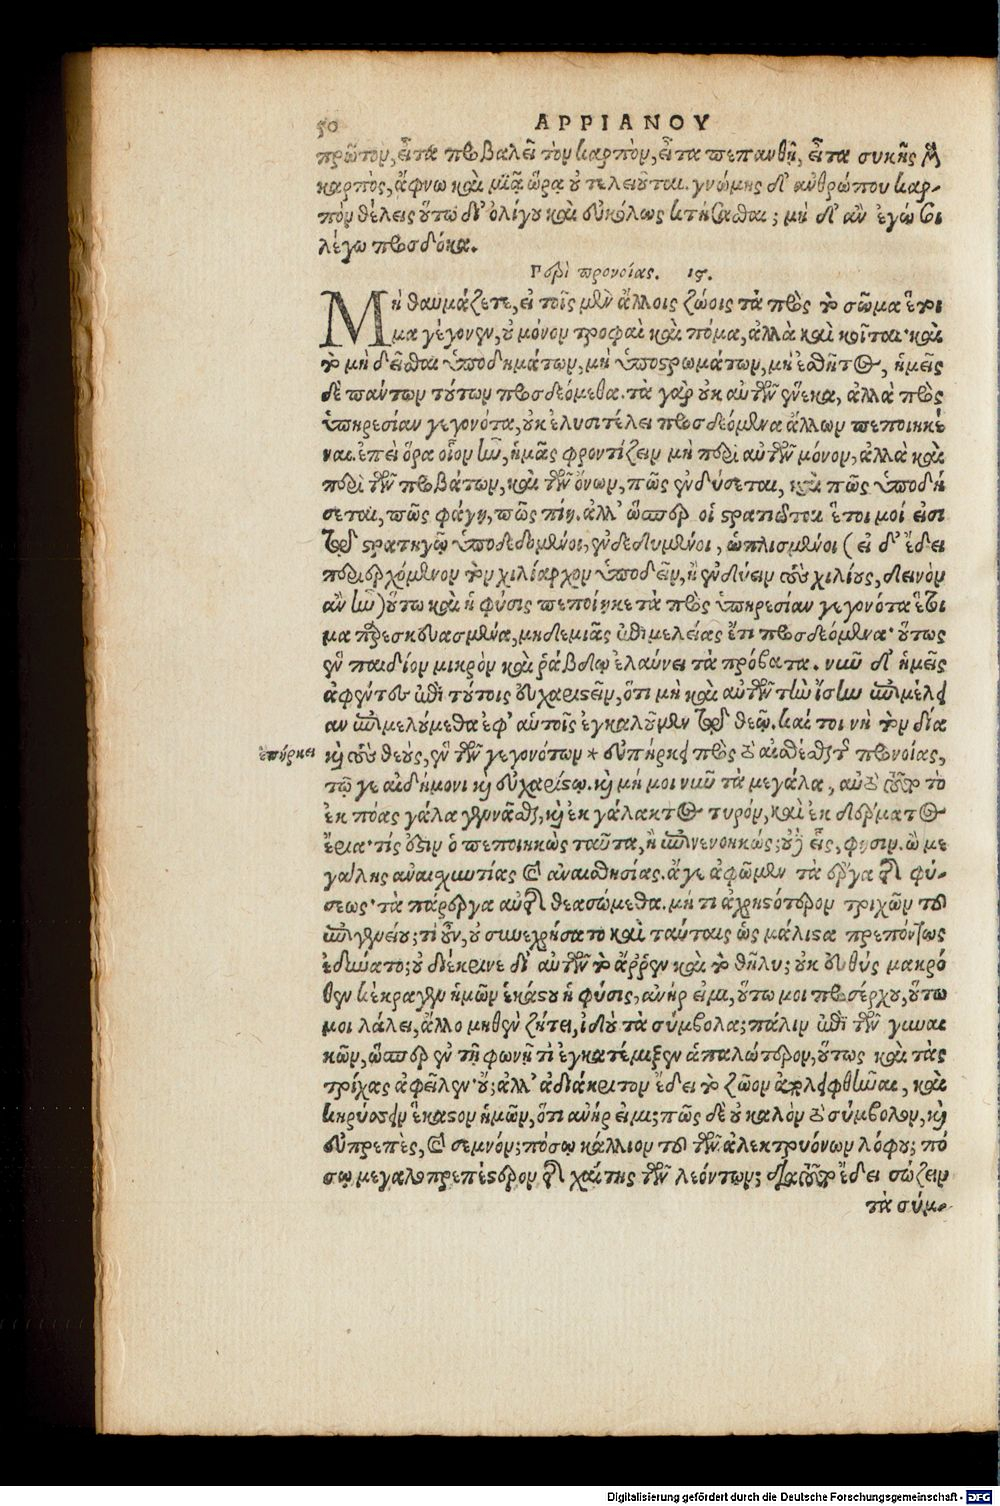 50 ΑΡΡΙΑΝΟΥ
πρῶτον, εἶτα προβαλεῖ τὸν καρπὸν, εἶτα πεπανθῇ, εἶτα συκῆς μὲν
καρπὸς, ἄφνω καὶ μιᾷ ὥρᾳ οὐ τελειοῦται. γνώμης δ' ἀνθρώπου καρ-
πὸν θέλεις οὕτω δι' ὀλίγου καὶ εὐκόλως κτήσασθαι; μὴ δ' ἂν ἐγώ σοι
λέγω προσδόκα.
Περὶ προνοίας. ις.
Μὴ θαυμάζετε, εἰ τοῖς μὲν ἄλλοις ζώοις τὰ πρὸς τὸ σῶμα ἕτοι
μα γέγονεν, οὐ μόνον τροφαὶ καὶ πόμα, ἀλλὰ καὶ κοῖται· καὶ
τὸ μὴ δεῖσθαι ὑποδημάτων, μὴ ὑποστρωμάτων, μὴ ἐσθῆτος, ἡμεῖς
δὲ πάντων τούτων προσδεόμεθα. τὰ γὰρ οὐκ αὐτῶν ἕνεκα, ἀλλὰ πρὸς
ὑπηρεσίαν γεγονότα, οὐκ ἐλυσιτέλει προσδεόμενα ἄλλων πεποιηκέ
ναι. ἐπεὶ ὅρα οἷον ἦν, ἡμᾶς φροντίζειν μὴ περὶ αὐτῶν μόνον, ἀλλὰ καὶ
περὶ τῶν προβάτων, καὶ τῶν ὄνων, πῶς ἐνδύσεται, καὶ πῶς ὑποδή
σεται, πῶς φάγῃ, πῶς πίῃ. ἀλλ' ὥσπερ οἱ στρατιῶται ἕτοιμοί εἰσι
τῷ στρατηγῷ ὑποδεδεμένοι, ἐνδεδυμένοι, ὡπλισμένοι (εἰ δ' ἔδει
περιερχόμενον τὸν χιλίαρχον ὑποδεῖν, ἢ ἐνδύειν τοὺς χιλίους, δεινὸν
ἂν ἦν) οὕτω καὶ ἡ φύσις πεποίηκε τὰ πρὸς ὑπηρεσίαν γεγονότα ἕτοι
μα παρεσκευασμένα, μηδεμιᾶς ἐπιμελείας ἔτι προσδεόμενα· οὕτως
ἓν παιδίον μικρὸν καὶ ῥάβδῳ ἐλαύνει τὰ πρόβατα. νῦν δ' ἡμεῖς
ἀφέντες ἐπὶ τούτοις εὐχαριστεῖν, ὅτι μὴ καὶ αὐτῶν τὴν ἴσην ἐπιμέλει
αν ἐπιμελούμεθα ἐφ' αὑτοῖς ἐγκαλοῦμεν τῷ θεῷ. καί τοι νὴ τὸν δία
ἐπήρκει καὶ τοὺς θεοὺς, ἓν τῶν γεγονότων * εὐπήρκει πρὸς τὸ αἰσθέσθαι τῆς προνοίας,
τῷ γε αἰδήμονι καὶ εὐχαρίστῳ. καὶ μή μοι νῦν τὰ μεγάλα, αὐτὸ τοῦτο τὸ
ἐκ πόας γάλα γεννᾶσθαι, καὶ ἐκ γάλακτος τυρόν, καὶ ἐκ δέρματος
ἔρια· τίς ἐστιν ὁ πεποιηκὼς ταῦτα, ἢ ἐπινενοηκώς; οὐδὲ εἷς, φησιν. ὢ με
γάλης ἀναισχυντίας καὶ ἀναισθησίας. ἄγε ἀφῶμεν τὰ ἔργα τῆς φύ-
σεως· τὰ πάρεργα αὐτῆς θεασώμεθα. μή τι ἀχρηστότερον τριχῶν τῶν
ἐπὶ γενείου; τί οὖν, οὐ συνεχρήσατο καὶ ταύταις ὡς μάλιστα πρεπόντως
ἐδύνατο; οὐ διέκρινε δι' αὐτῶν τὸ ἄῤῥεν καὶ τὸ θῆλυ; οὐκ εὐθὺς μακρό
θεν κέκραγεν ἡμῶν ἑκάστου ἡ φύσις, ἀνήρ εἰμι, οὕτω μοι προσέρχου, οὕτω
μοι λάλει, ἄλλο μηθὲν ζήτει, ἰδοὺ τὰ σύμβολα; πάλιν ἐπὶ τῶν γυναι
κῶν, ὥσπερ ἐν τῇ φωνῇ τὶ ἐγκατέμιξεν ἁπαλώτερον, οὕτως καὶ τὰς
τρίχας ἀφεῖλεν· οὔ; ἀλλ' ἀδιάκριτον ἔδει τὸ ζῶον ἀπολειφθῆναι, καὶ
κηρύσσειν ἕκαστον ἡμῶν, ὅτι ἀνήρ εἰμι; πῶς δὲ οὐ καλὸν τὸ σύμβολον, καὶ
εὐπρεπὲς, καὶ σεμνόν; πόσῳ κάλλιον τοῦ τῶν ἀλεκτρυόνων λόφου; πό
σῳ μεγαλοπρεπέστερον τῆς χαίτης τῶν λεόντων; διὰ τοῦτο ἔδει σώζειν
τὰ σύμ-
Digitalisierung gefördert durch die Deutsche Forschungsgemeinschaft - DFG